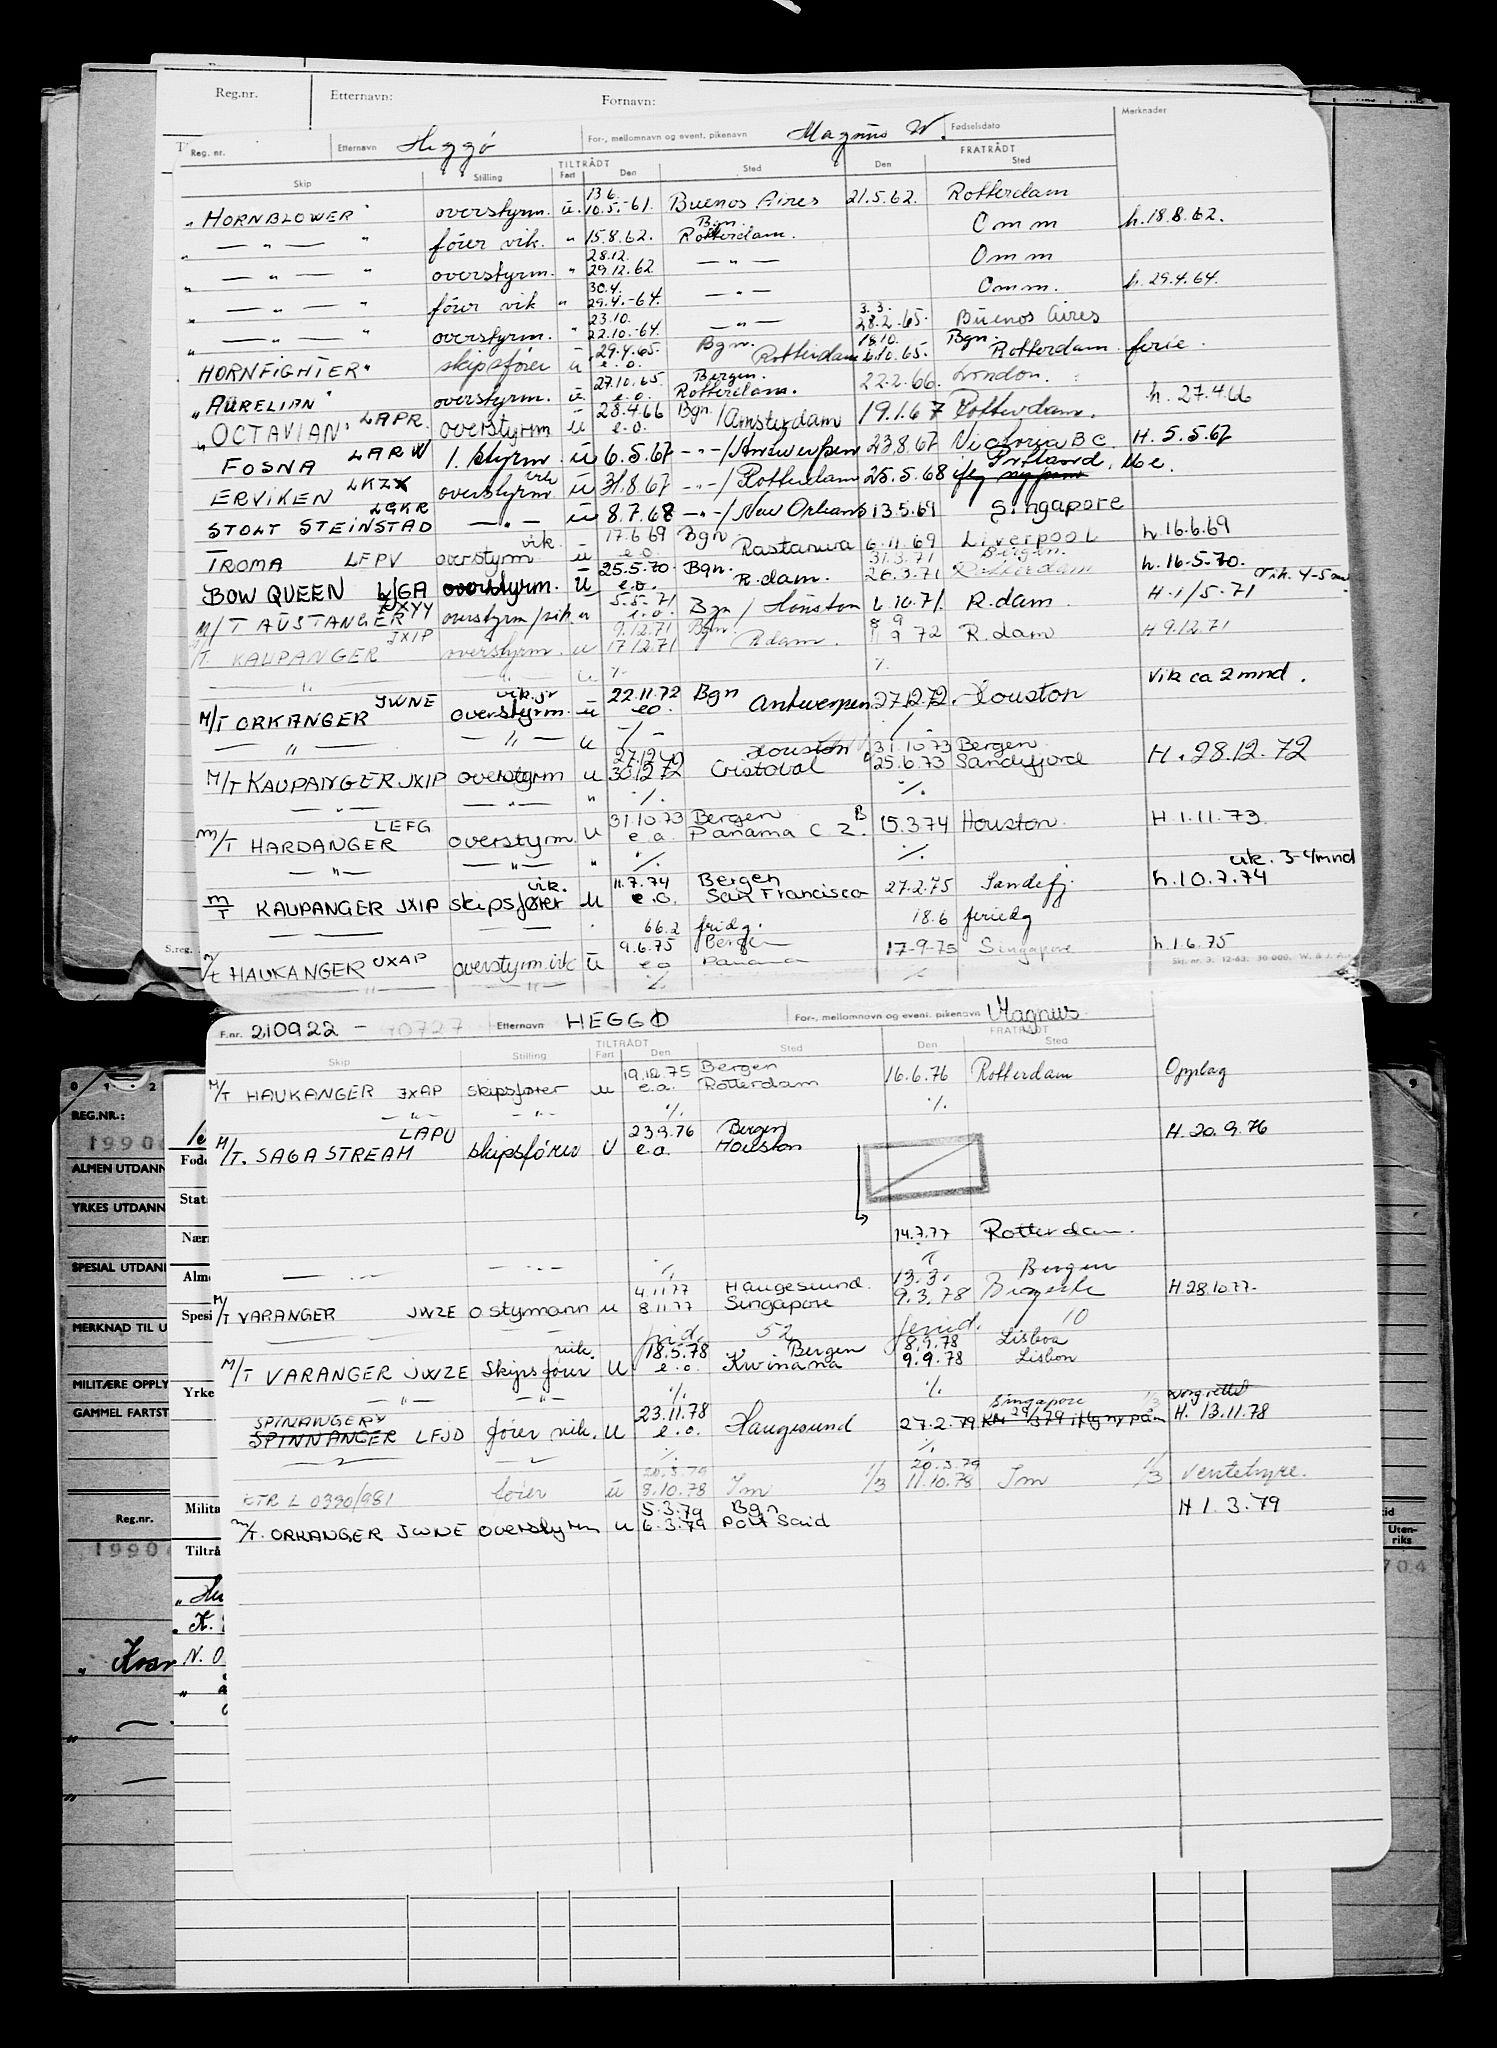 Reg.nr. Etternavn: Fornavn:
Reg. nr. Etternavn Heggø For-, mellomnavn og event. pikenavn Magnus W. Fødselsdato Merknader
TILTRÅDT FRATRÅDT
Skip Stilling Fart Den Sted Den Sted
13.6.
"HORNBLOWER" overstyrm. u. 10.5.-61. Buenos Aires 21.5.62. Rotterdam
Bgn.
" — " — " fører vik. " 15.8.62. Rotterdam. Omm h. 18.8.62.
28.12.
" — " — " overstyrm. " 29.12.62 — " — Omm
30.4.
" — " — " fører vik " 29.4.-64. — " — Omm. h. 29.4.64.
23.10. 3.3.
" — " — " overstyrm. " 22.10.-64. — " — 28.2.65. Buenos Aires
29.4.65. Bgn. 18.10. Bgn.
HORNFIGHTER" skipsfører u e.o. Rotterdam 6.10.65. Rotterdam ferie.
27.10.65 Bergen.
"AURELIAN" overstyrm. u e.o. Rotterdam. 22.2.66. London.
"OCTAVIAN" LAPR. overstyrm u 28.4.66 e.o. Bgn./Amsterdam 19.1.67 Rotterdam. h. 27.4.66
FOSNA LARW 1. styrm u 6.5.67 — " — /Antwerpen 23.8.67 Victoria B C. H. 5.5.67
ERVIKEN LKZX overstyrm vik u 31.8.67 — " — / Rotterdam 25.5.68 Portland, Me.
STOLT STEINSTAD LGKR — " — u 8.7.68 — " — / New Orleans 13.5.69 Singapore
vik. 17.6.69 Bgn.
TROMA LFPV overstyrm u e.o. Rastanura 6.11.69 Liverpool h. 16.6.69
25.5.70. Bgn. 31.3.71 Bergen.
BOW QUEEN overstyrm. u e.o. R.dam. 26.3.71 Rotterdam h. 16-5-70.
JXYY 5.5.71 vik. 4-5 mn
M/T AUSTANGER overstyrm/vik u e.o. Bgn / Houston 6.10.71. R.dam. H. 1/5-71
JXIP 9.12.71 Bgn.
M/T KAUPANGER overstyrm. u 17.12.71 R.dam. 9 72 R.dam H 9.12.71
— " — " u %. %.
JWNE vik. jr 22.11.72 Bgn Vik ca 2 mnd.
M/T ORKANGER overstyrm. u eo Antwerpen 27.12.72. Houston
— " — — " — u — / — — / —
27.12.72 Houston 31.10.73 Bergen
M/T KAUPANGER JXIP overstyrm u 30.12.72 Cristobal 25.6.73 Sandefjord H. 28.12.72
— " — — " — " %. %.
LEFG 31.10.73 Bergen
M/T HARDANGER overstyrm. u e.o. Panama C Z. 15.3.74 Houston H. 1.11.73.
— " — " %. %.
vik. 11.7.74 Bergen vik. 3-4mnd
M/T KAUPANGER JXIP skipsfører u e.o. San Francisco 27.2.75 Sandefj. h. 10.7.74
66.2 fridg. 18.6 feriedg
9.6.75 Bergen
M/T HAUKANGER JXAP overstyrm. vik u e.o Panama 17-9-75 Singapore h. 1.6.75
— " — — " — %. %
S.reg. Skj. nr. 3. 12-63. 30 000. W. & J. A/S
F.nr. 210922 - 40727 Etternavn HEGGØ For-, mellomnavn og event. pikenavn Magnus
TILTRÅDT FRATRÅDT
Skip Stilling Fart Den Sted Den Sted
19.12.75 Bergen
M/T HAUKANGER JXAP skipsfører u e.a. Rotterdam 16.6.76 Rotterdam Opplag
— " — — " — %. %.
LAPU 23.9.76 Bergen
M/T. SAGA STREAM skipsfører U e.a. Houston H. 20.9.76
14.7.77 Rotterdam.
— . — — " — %.
4.11.77 Haugesund. 13.3. Bergen
M/T VARANGER JWZE o styrmann u 8.11.77 Singapore 9.3.78 H. 28.10.77.
frid. 52 feried. 10
vik. 18.5.78 Bergen 8.9.78 Lisboa
M/T VARANGER JWZE Skipsfører U e.o. Kwinana 9.9.78 Lisbon
— " — — " — %. %.
SPINANGER 23.11.78 Singapore
SPINNANGER LFJD fører vik. U e.o. Haugesund 27.2.79 H. 13.11.78
%. %.
20.3.79 20.3.79
ETR L 0390/981 fører u 8.10.78 Im 1/3 11.10.78 Im 1/3 Ventehyre.
5.3.79 Bgn H 1.3.79
M/T. ORKANGER JWNE overstyrm u 6.3.79 Port Said
REG.NR.:
1990
ALMEN UTDANN
YRKES UTDANN
SPESIAL UTDAN
MERKNAD TIL U
MILITÆRE OPPLY
GAMMEL FARTST
Fød
Stat
Nær
Alm
Spesi
Yrke
Milita
Tiltrå
Reg.nr.
1990
Uten-
riks
704
K.
N. O